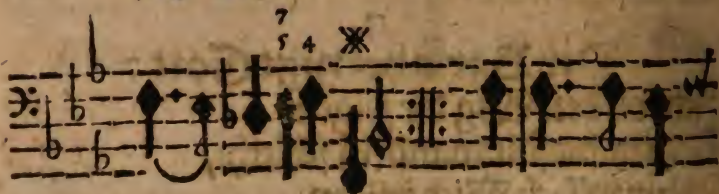 7
5 4